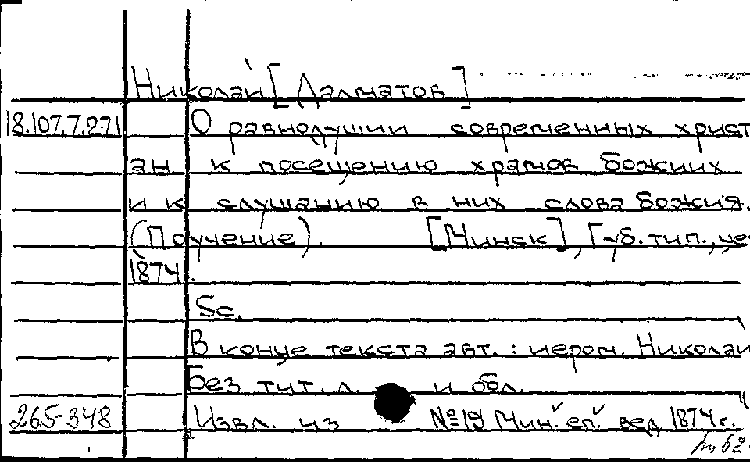 Николай [Далматов]
18.107.7.271 О равнодушии современных христи
ан к посещению храмов божиих
и к слушанию в них слова божия.
(Поучение). [Минск], Губ. тип., це
1874.
8с.
В конце текста авт.: иером. Николай
Без тит. л. и обл.
265-348 Извл. из №19 Мин. еп. вед. 1874 г.